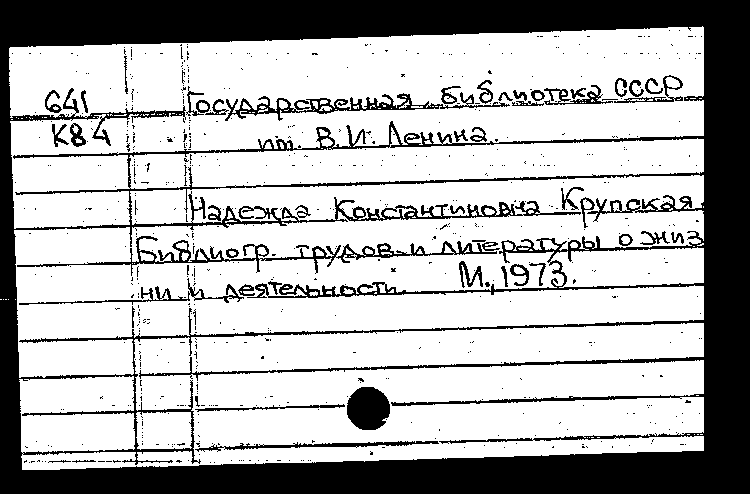 641 Государственная библиотека СССР
К84 им. В.И. Ленина.
Надежда Константиновна Крупская.
Библиогр. трудов и литературы о жиз
ни и деятельности. М., 1973.